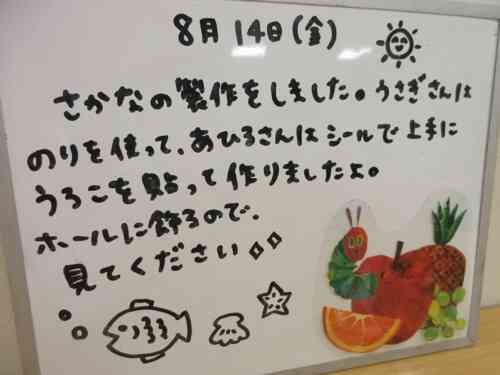 8月 14日(金)
さかなの製作をしました。うさぎさんは
のりを使って、あひるさんはシールで上手に
うろこを貼って作りましたよ。
ホールに飾るので、
見てください